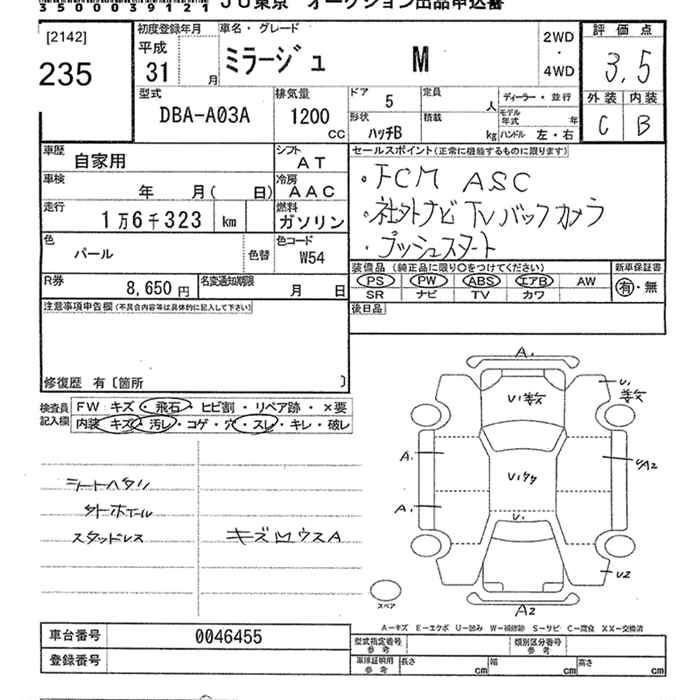 3500039121 JU東京 オークション出品申込書
[2142]
235
初度登録年月
平成
31 月
車名・グレード
ミラージュ M
2WD
・
4WD
評価点
3.5
外装 内装
C B
型式
DBA-A03A
排気量
1200
cc
ドア 5
定員 人
ディーラー・並行
形状
ハッチB
積載 kg
モデル年式 年
ハンドル 左・右
車歴
自家用
シフト
AT
車検
年 月( 日)
冷房
AAC
走行
1万6千323 km
燃料
ガソリン
色
パール
色替
色コード
W54
R券
8,650 円
名変通知期限
月 日
セールスポイント(正常に機能するものに限ります)
・FCM ASC
・社外ナビ TV バックカメラ
・プッシュスタート
装備品(純正品に限り○をつけてください)
PS PW ABS エアB AW
SR ナビ TV カワ
新車保証書
有・無
後日品
注意事項申告欄(不具合内容等は具体的に記入して下さい)
修復歴 有〔箇所 〕
検査員
記入欄
FW キズ・飛石・ヒビ割・リペア跡・×要
内装 キズ・汚レ・コゲ・穴・スレ・キレ・破レ
シートヘタリ
外ホイール
スタッドレス
キズ凹ウスA
A.
U.
数
U.数
A.
U.
A2
A.
U.
U2
A2
スペア
A−キズ E−エクボ U−凹み W−補修跡 S−サビ C−腐食 XX−交換済
車台番号 0046455
登録番号
型式指定番号
参考
類別区分番号
参考
車庫証明用
参考
長さ cm
幅 cm
高さ cm